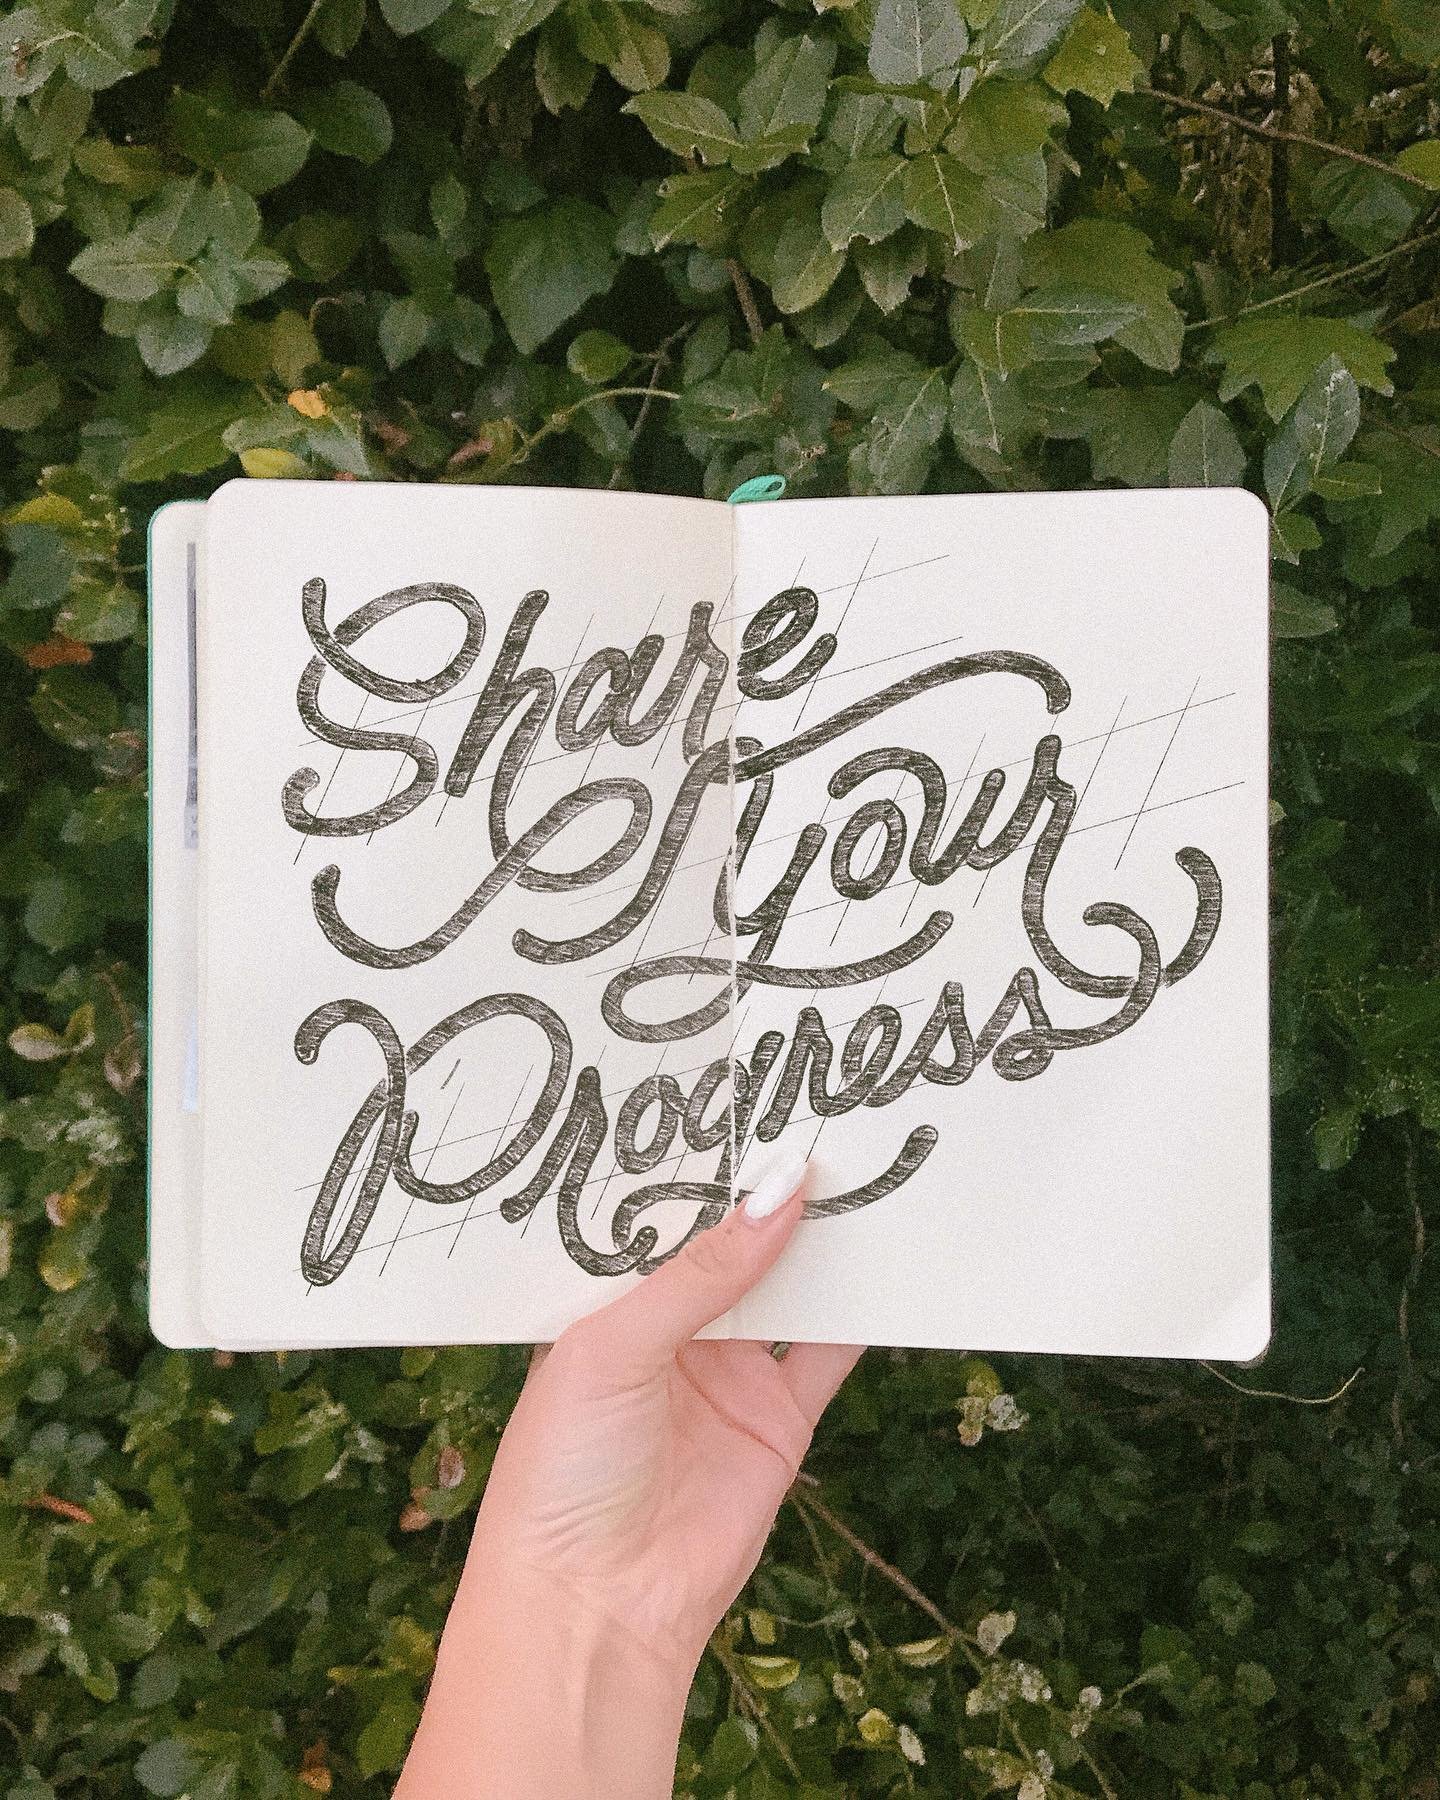 Share
Your
Progress